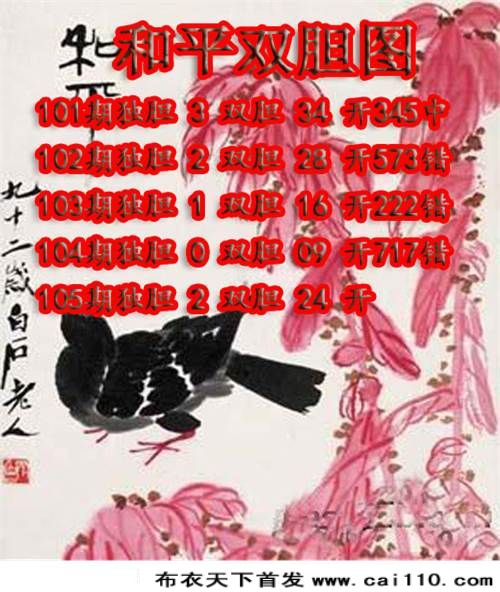 和平双胆图
和平
101期独胆 3 双胆 34 开345中
102期独胆 2 双胆 28 开573错
103期独胆 1 双胆 16 开222错
104期独胆 0 双胆 09 开717错
105期独胆 2 双胆 24 开
九十二岁白石老人
布衣天下首发 www.cai110.com